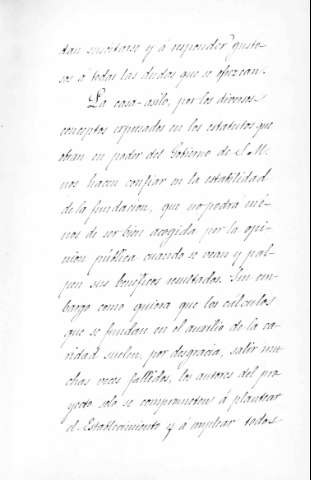 dan suscitarse y á responder gusto-
sos á todas las dudas que se ofrezcan.
La casa-asilo, por los diversos
conceptos expresados en los estatutos que
obran en poder del Gobierno de S. M.
nos hacen confiar en la estabilidad
de la fundacion, que no podrá mé-
nos de ser bien acogida por la opi-
nion pública cuando se vean y pal-
pen sus benéficos resultados. Sin em-
bargo como quiera que los cálculos
que se fundan en el auxilio de la ca-
ridad suelen, por desgracia, salir mu-
chas veces fallidos, los autores del pro-
yecto solo se comprometen á plantear
el Establecimiento y á emplear todos